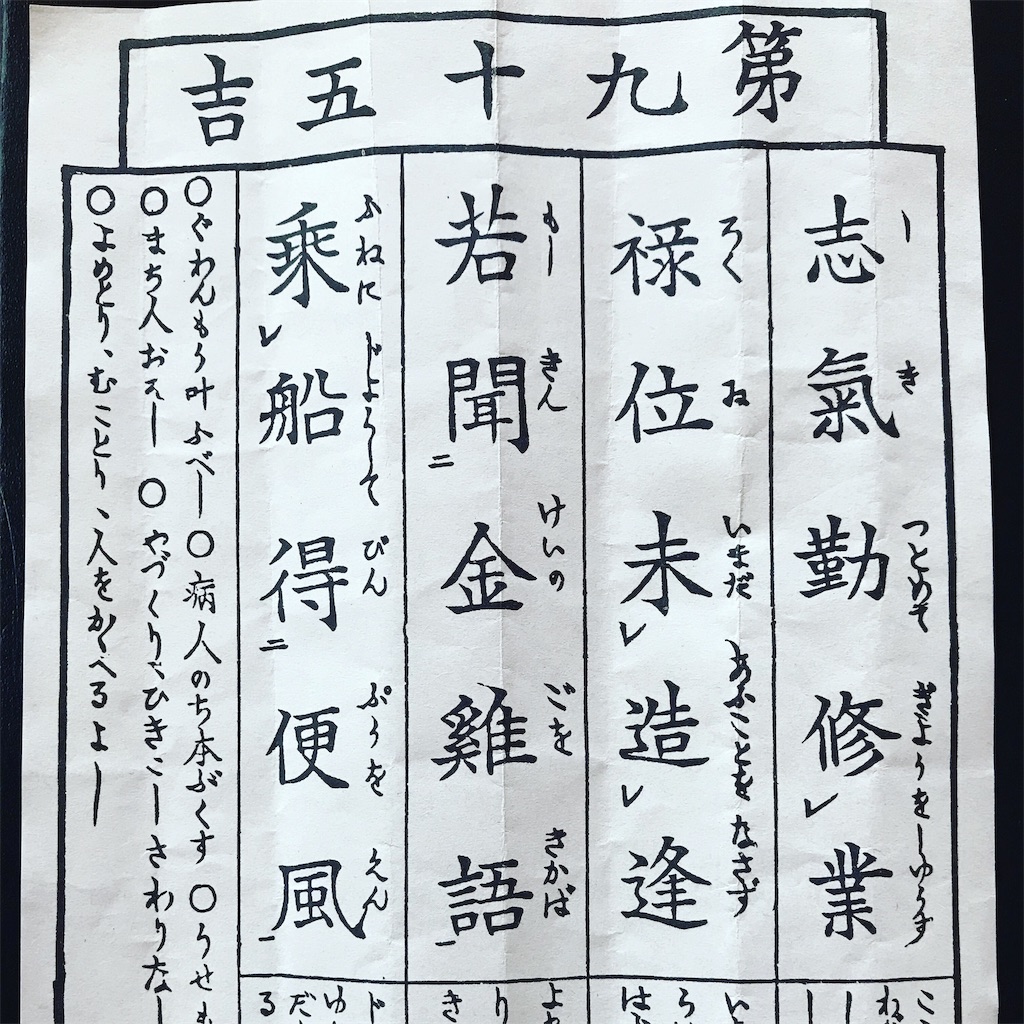 第九十五吉
志氣勤修業
し き つとめて ぎようをしゆうす
禄位未造逢
ろく ゐ いまだ あふことをなさず
若聞金雞語
もし きん けいの ごを きかば
乘船得便風
ふねに じようして びん ぷうを えん
〇ぐわんもう叶ふべし〇病人のち本ぶくす〇うせも
〇まち人おそし〇やづくりひきこしさわりなし
〇よめとり、むことり、人をかゝへるよし